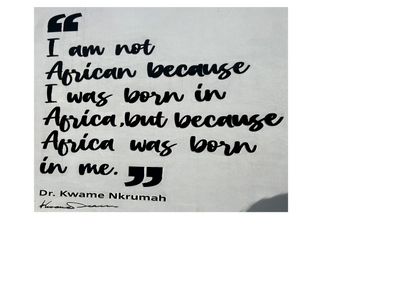 “
I am not
African because
I was born in
Africa, but because
Africa was born
in me. ”
Dr. Kwame Nkrumah